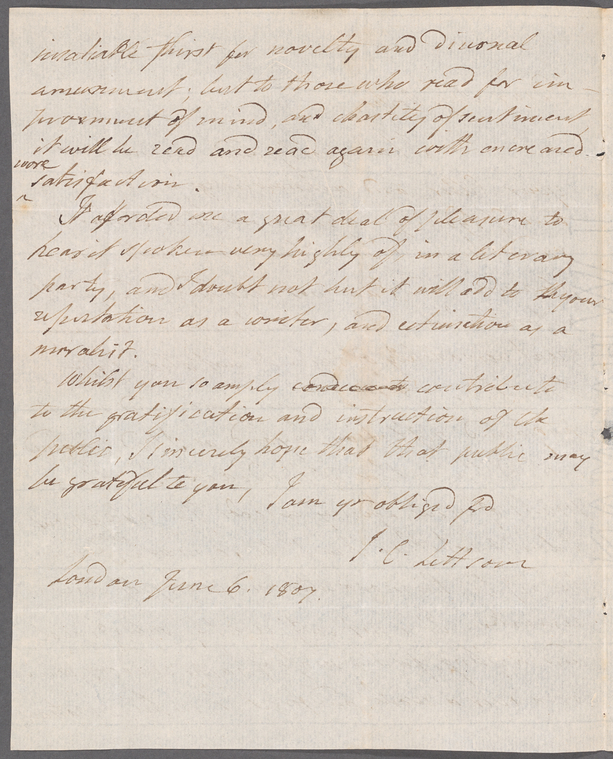 insatiable thirst for novelty and diurnal
amusement; but to those who read for im-
provement of mind, and chastity of sentiment
it will be read and read again with encreased
more
satisfaction.
It afforded me a great deal of pleasure to
hear it spoken very highly of, in a literary
party, and I doubt not but it will add to your
reputation as a writer, and estimation as a
moralist.
Whilst you so amply contribute
to the gratification and instruction of the
public, I sincerely hope that that public may
be grateful to you, I am yr obliged fd
J. C. Lettsom
London June 6. 1807.